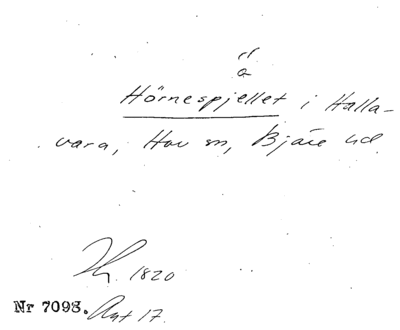 "
a
Hörnespjellet i Halla-
vara, Hov sn, Bjäre hd
1820
Nr 7093. Ant 17.